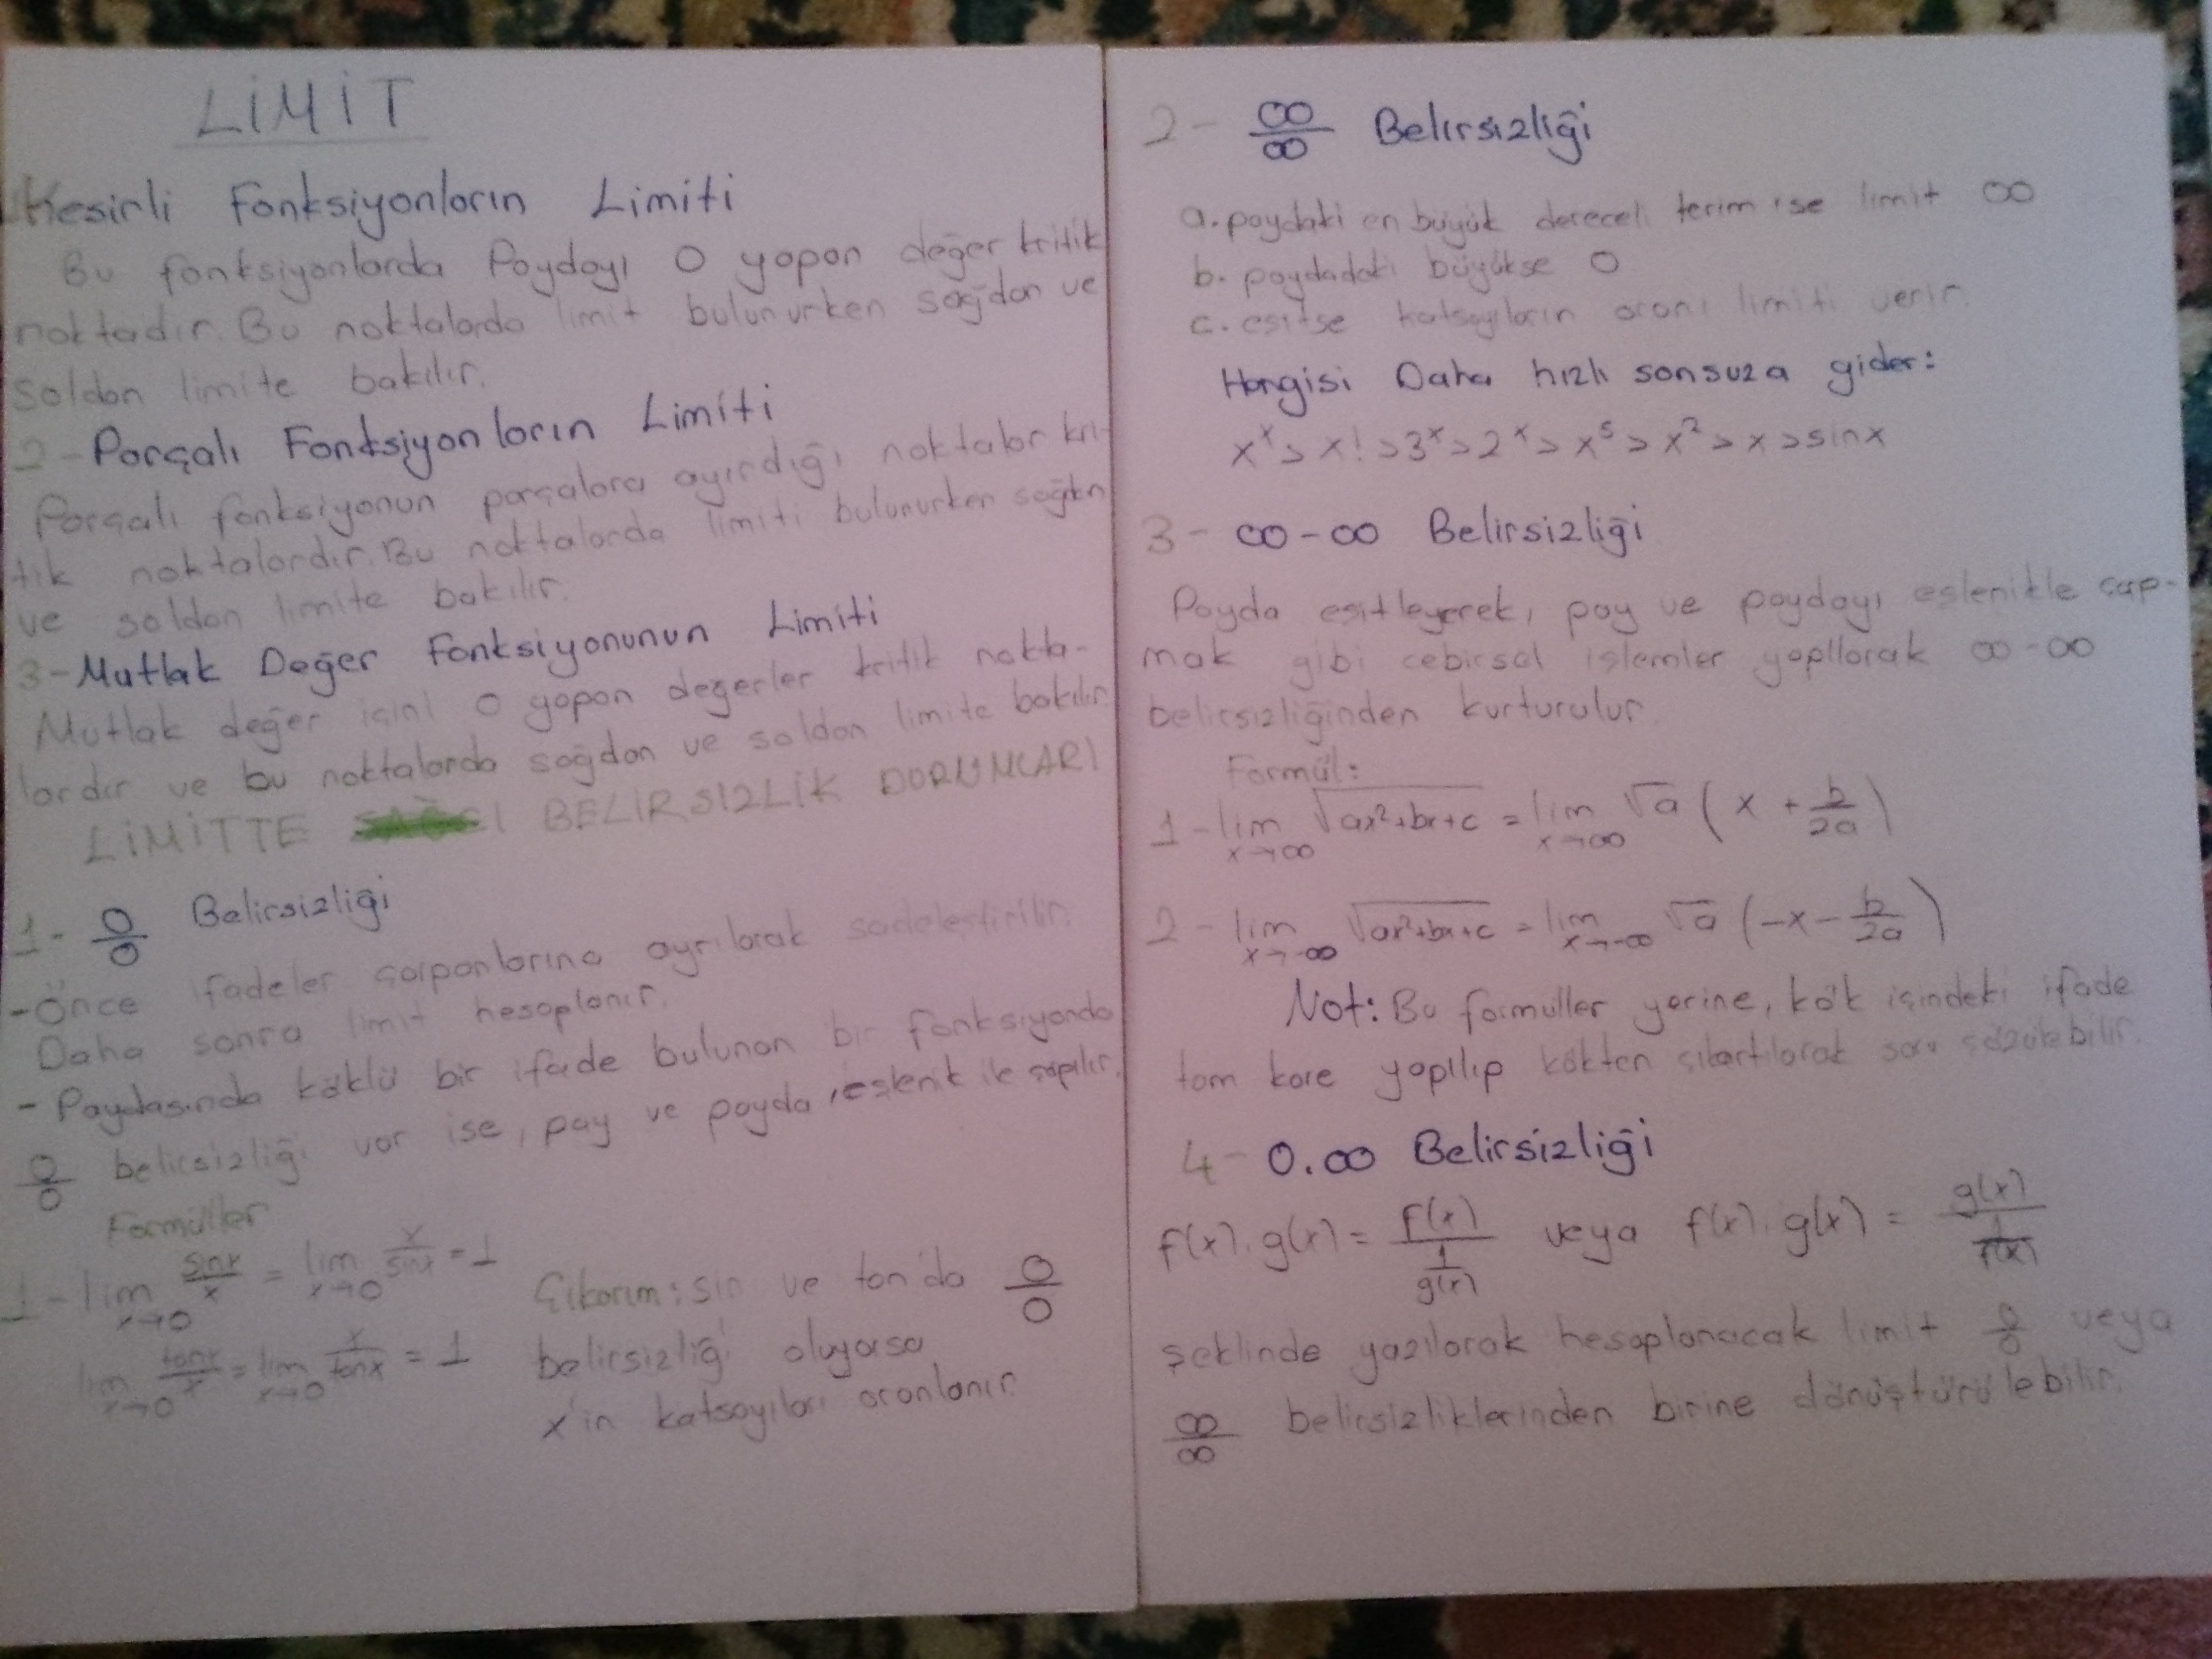 LİMİT
1 Kesirli Fonksiyonların Limiti
Bu fonksiyonlarda Paydayı 0 yapan değer kritik
noktadır. Bu noktalarda limit bulunurken sağdan ve
soldan limite bakılır.
2- Parçalı Fonksiyonların Limiti
Parçalı fonksiyonun parçalara ayırdığı noktalar kri-
tik noktalardır. Bu noktalarda limiti bulunurken sağdan
ve soldan limite bakılır.
3- Mutlak Değer Fonksiyonunun Limiti
Mutlak değer içini 0 yapan değerler kritik nokta-
lardır ve bu noktalarda sağdan ve soldan limite bakılır.
LİMİTTE BELİRSİZLİK DURUMLARI
1- 0/0 Belirsizliği
- Önce ifadeler çarpanlarına ayrılarak sadeleştirilir.
Daha sonra limit hesaplanır.
- Paydasında köklü bir ifade bulunan bir fonksiyonda
0/0 belirsizliği var ise, pay ve payda, eşlenik ile çarpılır.
Formüller
1- lim x→0 sinx/x = lim x→0 x/sinx = 1
lim x→0 tanx/x = lim x→0 x/tanx = 1
Çıkarım: sin ve tan'da 0/0
belirsizliği oluyorsa
x'in katsayıları oranlanır.
2- ∞/∞ Belirsizliği
a. paydaki en büyük dereceli terim ise limit ∞
b. paydadaki büyükse 0
c. eşitse katsayıların oranı limiti verir.
Hangisi Daha hızlı sonsuza gider:
x^x > x! > 3^x > 2^x > x^5 > x^2 > x > sinx
3- ∞-∞ Belirsizliği
Payda eşitleyerek, pay ve paydayı eşlenikle çarp-
mak gibi cebirsel işlemler yapılarak ∞-∞
belirsizliğinden kurturulur.
Formül:
1- lim x→∞ √(ax²+bx+c) = lim x→∞ √a (x + b/2a)
2- lim x→-∞ √(ax²+bx+c) = lim x→-∞ √a (-x - b/2a)
Not: Bu formüller yerine, kök içindeki ifade
tam kare yapılıp kökten çıkartılarak soru çözülebilir.
4- 0.∞ Belirsizliği
f(x).g(x) = f(x)/(1/g(x)) veya f(x).g(x) = g(x)/(1/f(x))
şeklinde yazılarak hesaplanacak limit 0/0 veya
∞/∞ belirsizliklerinden birine dönüştürülebilir.